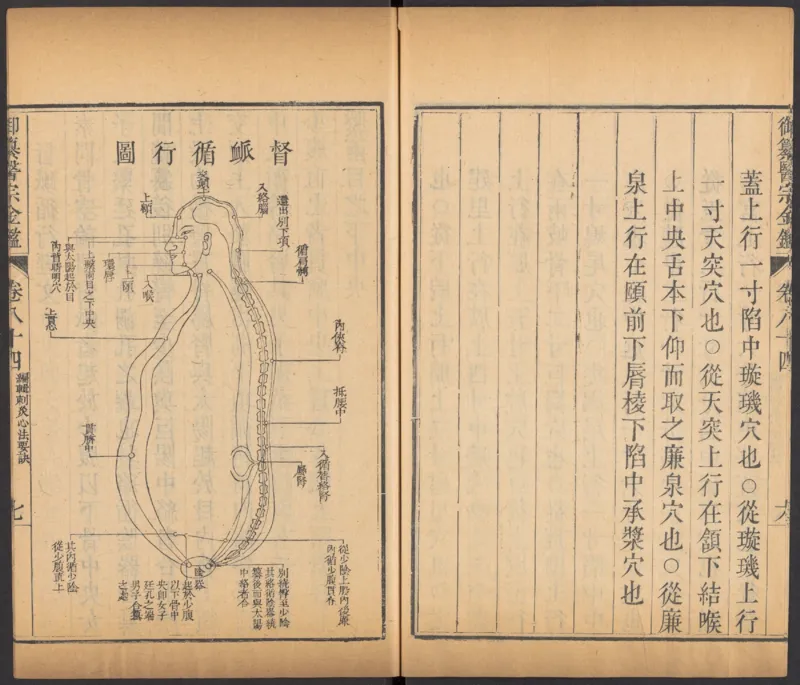 御纂醫宗金鑑
卷八十四
六
蓋上行一寸陷中璇璣穴也○從璇璣上行
一寸天突穴也○從天突上行在頷下結喉
上中央舌本下仰而取之廉泉穴也○從廉
泉上行在頤前下脣棱下陷中承漿穴也
督脈循行圖
上額
入絡腦
還出別下項
循肩髆
內俠脊
抵腰中
入循膂絡腎
腎
入喉
上頤
環脣
上繫兩目之下中央
與太陽起於目
內眥睛明穴
上貫心
貫臍中
從少陰上股內後廉
別繞臀至少陰
起於少腹
以下骨中
央即女子
廷孔之端
男子
其內循少陰
從少腹直上
御纂醫宗金鑑
卷八十四
編輯刺灸心法要訣
七